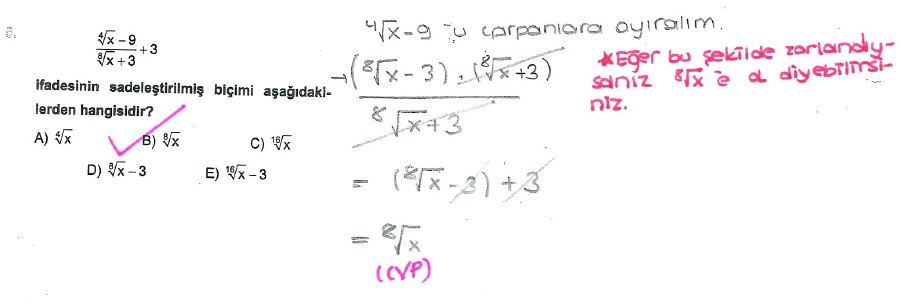 ⁴√x − 9
⁸√x + 3
+ 3
ifadesinin sadeleştirilmiş biçimi aşağıdaki-
lerden hangisidir?
A) ⁴√x B) ⁸√x C) ¹⁶√x
D) ⁸√x − 3 E) ¹⁶√x − 3
⁴√x − 9 'u çarpanlara ayıralım.
→ (⁸√x − 3) . (⁸√x + 3)
⁸√x + 3
= (⁸√x − 3) + 3
= ⁸√x
(CVP)
*Eğer bu şekilde zorlandıy-
sanız ⁸√x 'e a diyebilirsi-
niz.